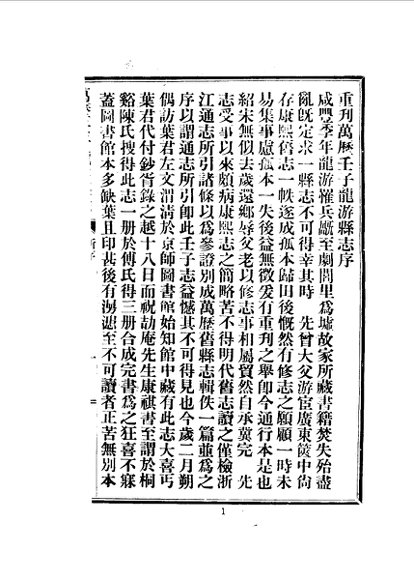 重刊萬厯壬子龍游縣志序
咸豐季年龍游惟兵厰至劇閭里爲墟故家所藏書籍焚失殆盡
亂旣定求一縣志不可得幸其時 先曾大父游宦廣東篋中尙
存康熙舊志一帙遂成孤本歸田後慨然有修志之願顧一時未
易集事慮孤本一失後益無徵爰有重刊之舉卽今通行本是也
紹宋無似去歲還鄉辱父老以修志事相屬貿然自承冀完 先
志受事以來頗病康熙志之簡略苦不得明代舊志讀之僅檢浙
江通志所引諸條以爲參證別成萬厯舊縣志輯佚一篇並爲之
序以謂通志所引卽此壬子志益憾其不可得見也今歲二月朔
偶訪葉君左文渭淸於京師圖書館始知館中藏有此志大喜丐
葉君代付鈔胥錄之越十八日而祝劼庵先生康祺書至謂於桐
谿陳氏搜得此志一册於傅氏得三册合成完書爲之狂喜不寐
蓋圖書館本多缺葉且印甚後有泐漶至不可讀者正苦無別本
1